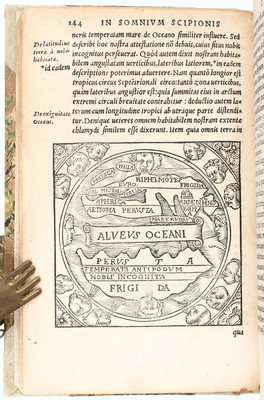 144 IN SOMNIVM SCIPIONIS
neris temperatam mare de Oceano similiter influere. Sed
describi hoc nostra attestatione nō debuit, cuius situs nobis
incognitus perseuerat. Quod autem dixit nostram habitabi-
lem angustatam uerticibus, lateribus latiorem, *in eadem
descriptione poterimus aduertere. Nam quanto longior est
tropicus circus Septētrionali circo: tanto zona uerticibus,
quàm lateribus angustior est: quia summitas eius in arctum
extremi circuli breuitate contrahitur: deductio autem la-
terum cum longitudine tropici ab utraque parte distendi-
tur. Denique ueteres omnem habitabilem nostram extentæ
chlamydi similem esse dixerunt. Item quia omnis terra in
De latitudine
terræ à nobis
habitatæ.
*id eadem
De exiguitate
Oceani.
FRIGIDA
EVRO.
APHRICA
AETIOPIA PERVSTA
MARE RVBRV
ALVEVS OCEANI
PERVSTA
TEMPERATA ANTIPODVM
NOBIS INCOGNITA
FRIGIDA
qua